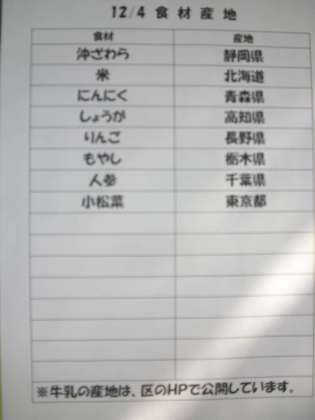 12/4 食材産地
食材 産地
沖ざわら 静岡県
米 北海道
にんにく 青森県
しょうが 高知県
りんご 長野県
もやし 栃木県
人参 千葉県
小松菜 東京都
※牛乳の産地は、区のHPで公開しています。